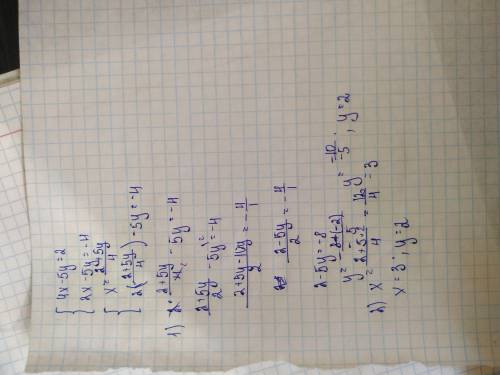 { 4x-5y=2
{ 2x-5y=-4
{ x = (2+5y)/4
{ 2((2+5y)/4) -5y=-4
1) 2 (2+5y)/4 - 5y = -4
(2+5y)/2 - 5y = -4
(2+5y-10y)/2 = -4/1
(2-5y)/2 = -4/1
2-5y=-8
y = -10/-5 ; y=2
2) x = (2+5·2)/4 = 12/4 = 3
x=3 ; y=2